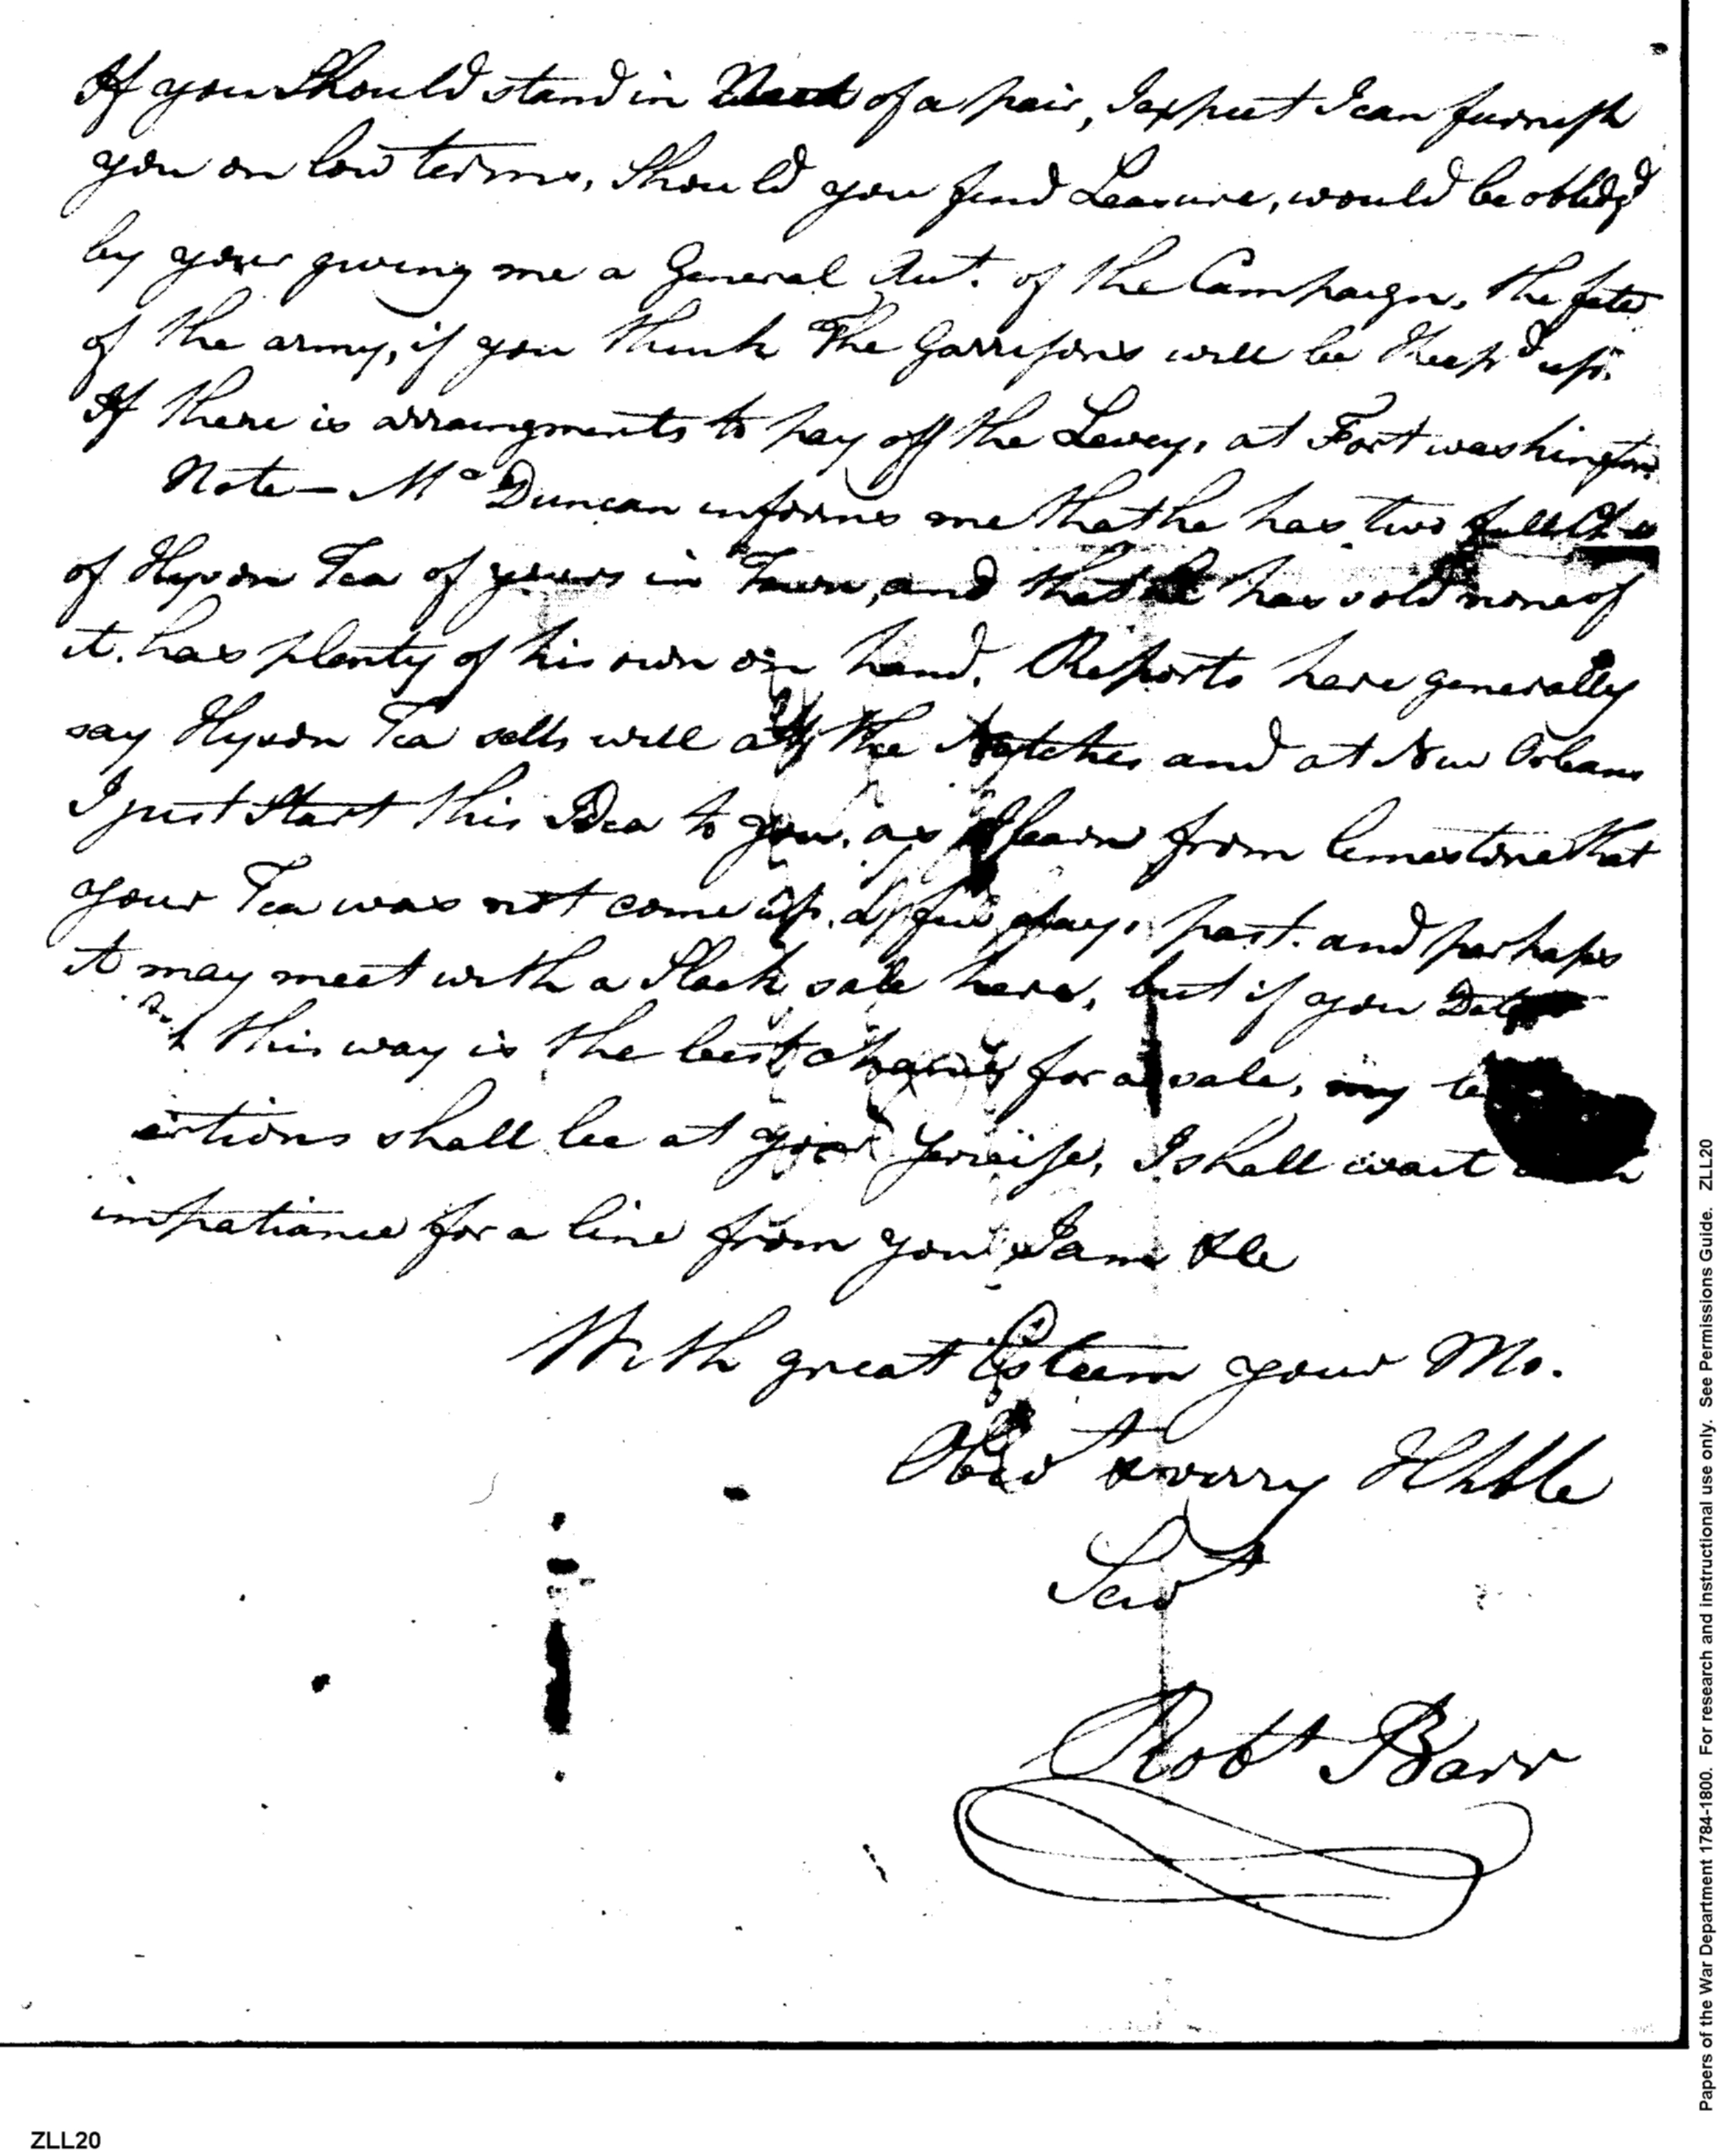 If you Should stand in Need of a pair, I expect I can furnish
you on low terms, Should you find Leasure, would be oblidgd
by your giving me a General Act. of the Campaign, the fate
of the army, if you think The Garrisons will be Keep'd up.
If there is arrangments to pay off the Leveys at Fort washington
Note — Mr Duncan informs me that he has two full
of Hyson Tea of yours in Town, and that he has sold none of
it. has plenty of his own on hand. Reports here generally
say Hyson Tea sells will at the Natches and at New Orleans
I just Start this Idea to you, as I learn from limestone that
your Tea was not come up. a few days past. and perhaps
it may meet with a Slack sale here, but if you
this way is the best chance for a sale, my
ertions shall be at your Serviise, I shall wait
impatiance for a line from you I am &c
With great Esteem your Mo.
Obed & verry Hbble
Servt
Robt Barr
Papers of the War Department 1784-1800. For research and instructional use only. See Permissions Guide. ZLL20
ZLL20